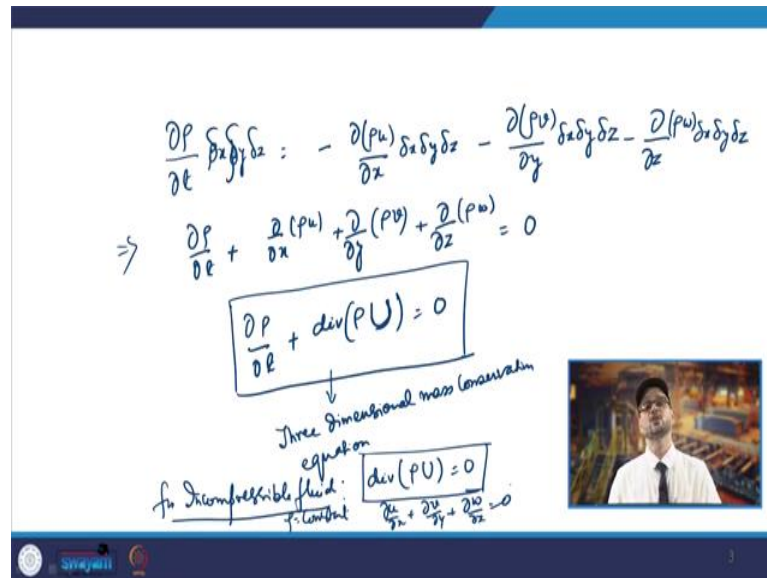 ∂ρ/∂t δxδyδz : - ∂(ρu)/∂x δxδyδz - ∂(ρv)/∂y δxδyδz - ∂/∂z (ρw) δxδyδz
⇒ ∂ρ/∂t + ∂/∂x (ρu) + ∂/∂y (ρv) + ∂/∂z (ρw) = 0
∂ρ/∂t + div(ρU) = 0
Three dimensional mass Conservation
equation
for Incompressible fluid: div(ρU) = 0
ρ=Constant ∂u/∂x + ∂v/∂y + ∂w/∂z = 0
swayam
3